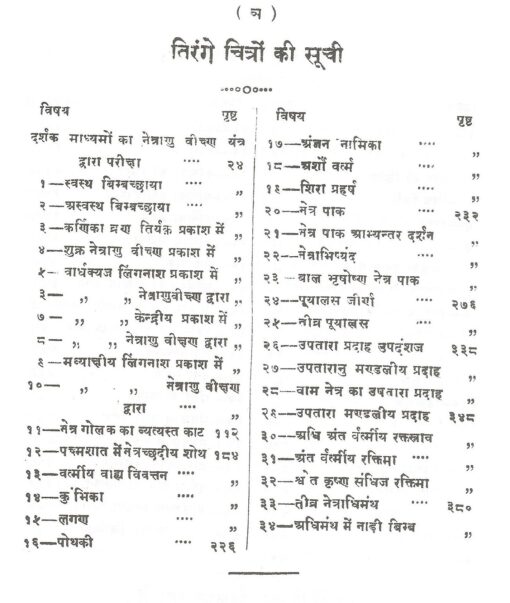 ( ञ )
तिरंगे चित्रों की सूची
विषय पृष्ट
दर्शक माध्यमों का नेत्राणु वीक्षण यंत्र
द्वारा परीक्षा .... २४
१—स्वस्थ बिम्बच्छाया ,,
२—अस्वस्थ बिम्बच्छाया ,,
३—कर्णिका व्रण तिर्यक् प्रकाश में ,,
४—शुक्र नेत्राणु वीक्षण प्रकाश में ,,
५—वार्धक्यज लिंगनाश प्रकाश में ,,
३— ,, ,, नेत्राणुवीक्षण द्वारा ,,
७— ,, ,, केन्द्रीय प्रकाश में ,,
८— ,, ,, नेत्राणु वीक्षण द्वारा ,,
९—मध्याक्षीय लिंगनाश प्रकाश में ,,
१०— ,, ,, नेत्राणु वीक्षण
द्वारा .... ,,
११—नेत्र गोलक का व्यत्यस्त काट ११२
१२—पक्ष्मशात में नेत्रच्छदीय शोथ १८४
१३—वर्त्मीय वाह्य विवत्तन .... ,,
१४—कुंभिका .... ,,
१५—लगण ,,
१६—पोथकी .... २२६
विषय पृष्ट
१७—अंजन नामिका .... ,,
१८—अर्शो वर्त्म .... ,,
१९—शिरा प्रहर्ष .... ,,
२०—नेत्र पाक .... २३२
२१—नेत्र पाक आभ्यन्तर दर्शन ,,
२२—नेत्राभिष्यंद .... ,,
२३—बाल भृषोष्ण नेत्र पाक ,,
२४—पूयालस जीर्ण .... २७६
२५—तीव्र पूयालस ,,
२६—उपतारा प्रदाह उपदंशज ३३८
२७—उपतारानु मण्डलीय प्रदाह ,,
२८—वाम नेत्र का उपतारा प्रदाह ,,
२९—उपतारा मण्डलीय प्रदाह ३४८
३०—अधि अंत र्वर्त्मीय रक्तस्त्राव ,,
३१—अंत र्वर्त्मीय रक्तिमा .... ,,
३२—श्वेत कृष्ण संधिज रक्तिमा ,,
३३—तीव्र नेत्राधिमंथ .... ३८०
३४—अधिमंथ में नाड़ी बिम्ब ,,